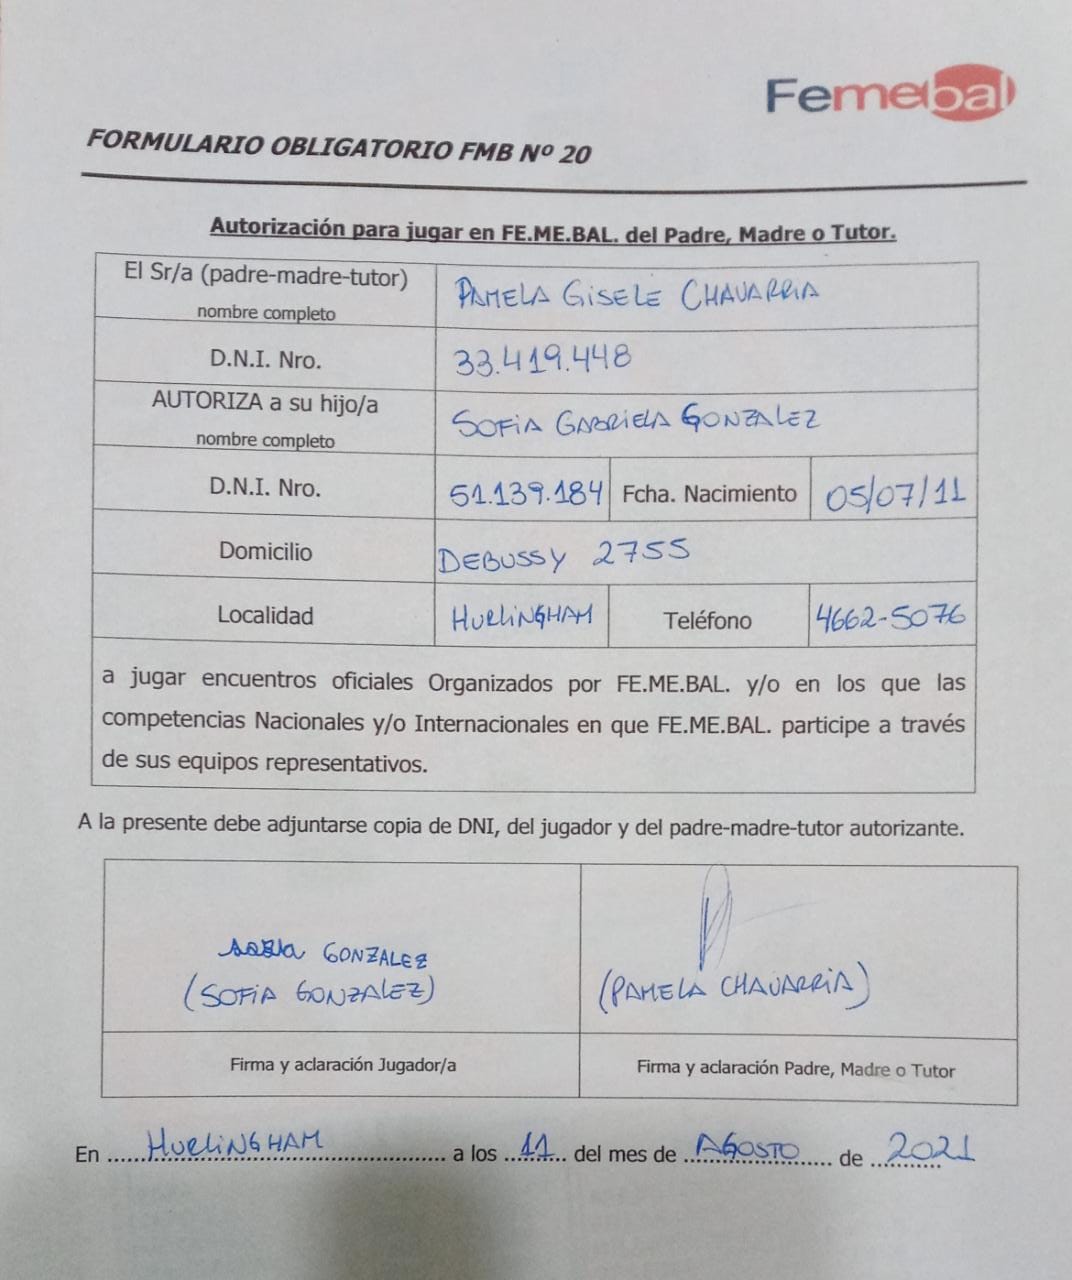 Femebal
FORMULARIO OBLIGATORIO FMB Nº 20
Autorización para jugar en FE.ME.BAL. del Padre, Madre o Tutor.
El Sr/a (padre-madre-tutor)
nombre completo
PAMELA GISELE CHAVARRIA
D.N.I. Nro.
33.419.448
AUTORIZA a su hijo/a
nombre completo
SOFIA GABRIELA GONZALEZ
D.N.I. Nro.
51.139.184
Fcha. Nacimiento
05/07/11
Domicilio
DEBUSSY 2755
Localidad
HURLINGHAM
Teléfono
4662-5076
a jugar encuentros oficiales Organizados por FE.ME.BAL. y/o en los que las
competencias Nacionales y/o Internacionales en que FE.ME.BAL. participe a través
de sus equipos representativos.
A la presente debe adjuntarse copia de DNI, del jugador y del padre-madre-tutor autorizante.
GONZALEZ
(SOFIA GONZALEZ)
(PAMELA CHAVARRIA)
Firma y aclaración Jugador/a
Firma y aclaración Padre, Madre o Tutor
En HURLINGHAM a los 11 del mes de AGOSTO de 2021